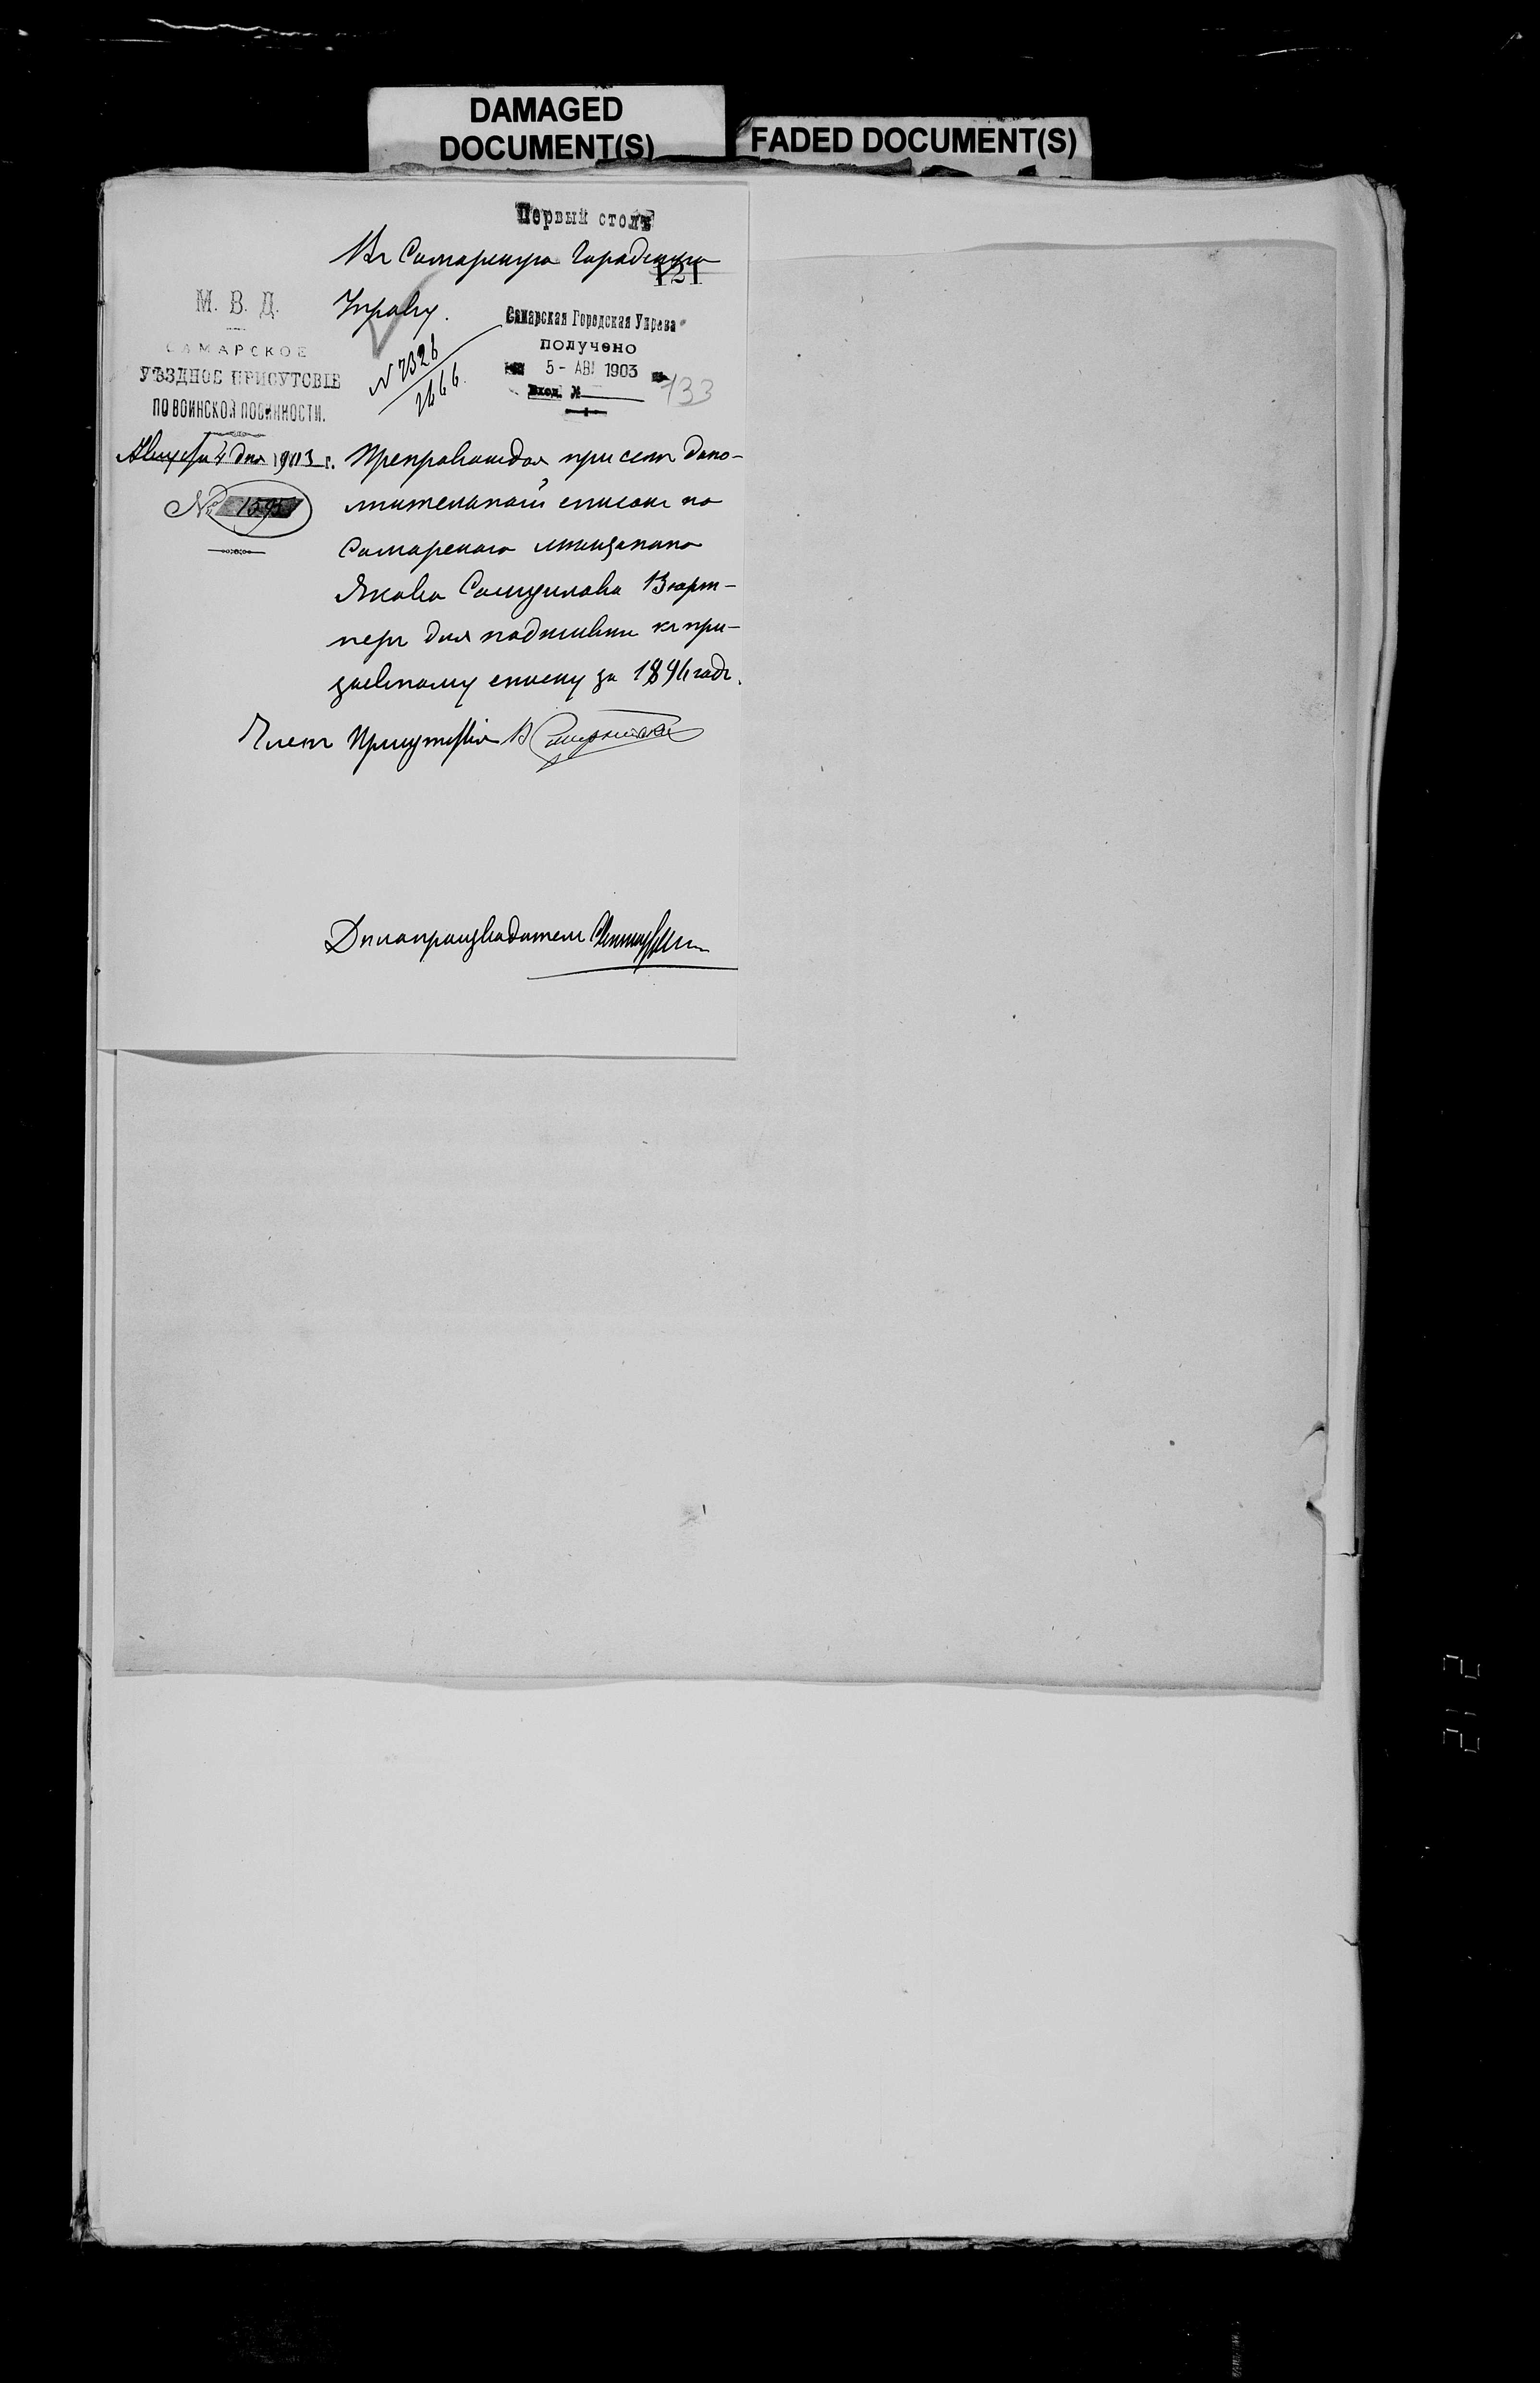 DAMAGED
DOCUMENT(S)
FADED DOCUMENT(S)
Первый столъ
Въ Самарскую Городскую
121
Управу.
М. В. Д.
САМАРСКОЕ
УѢЗДНОЕ ПРИСУТСТВІЕ
ПО ВОИНСКОЙ ПОВИННОСТИ.
Августа 4 дня 1903 г.
№ 1595
№ 7326
2666.
Самарская Городская Управа
получено
5 - АВГ 1903
Вход. №
133
Препровождая при семъ допо-
лнительный списокъ на
Самарскаго мѣщанина
Якова Самуилова Вюрт-
неръ для подшивки къ при-
зывному списку за 1894 годъ.
Членъ Присутствія В
Дѣлопроизводитель
212